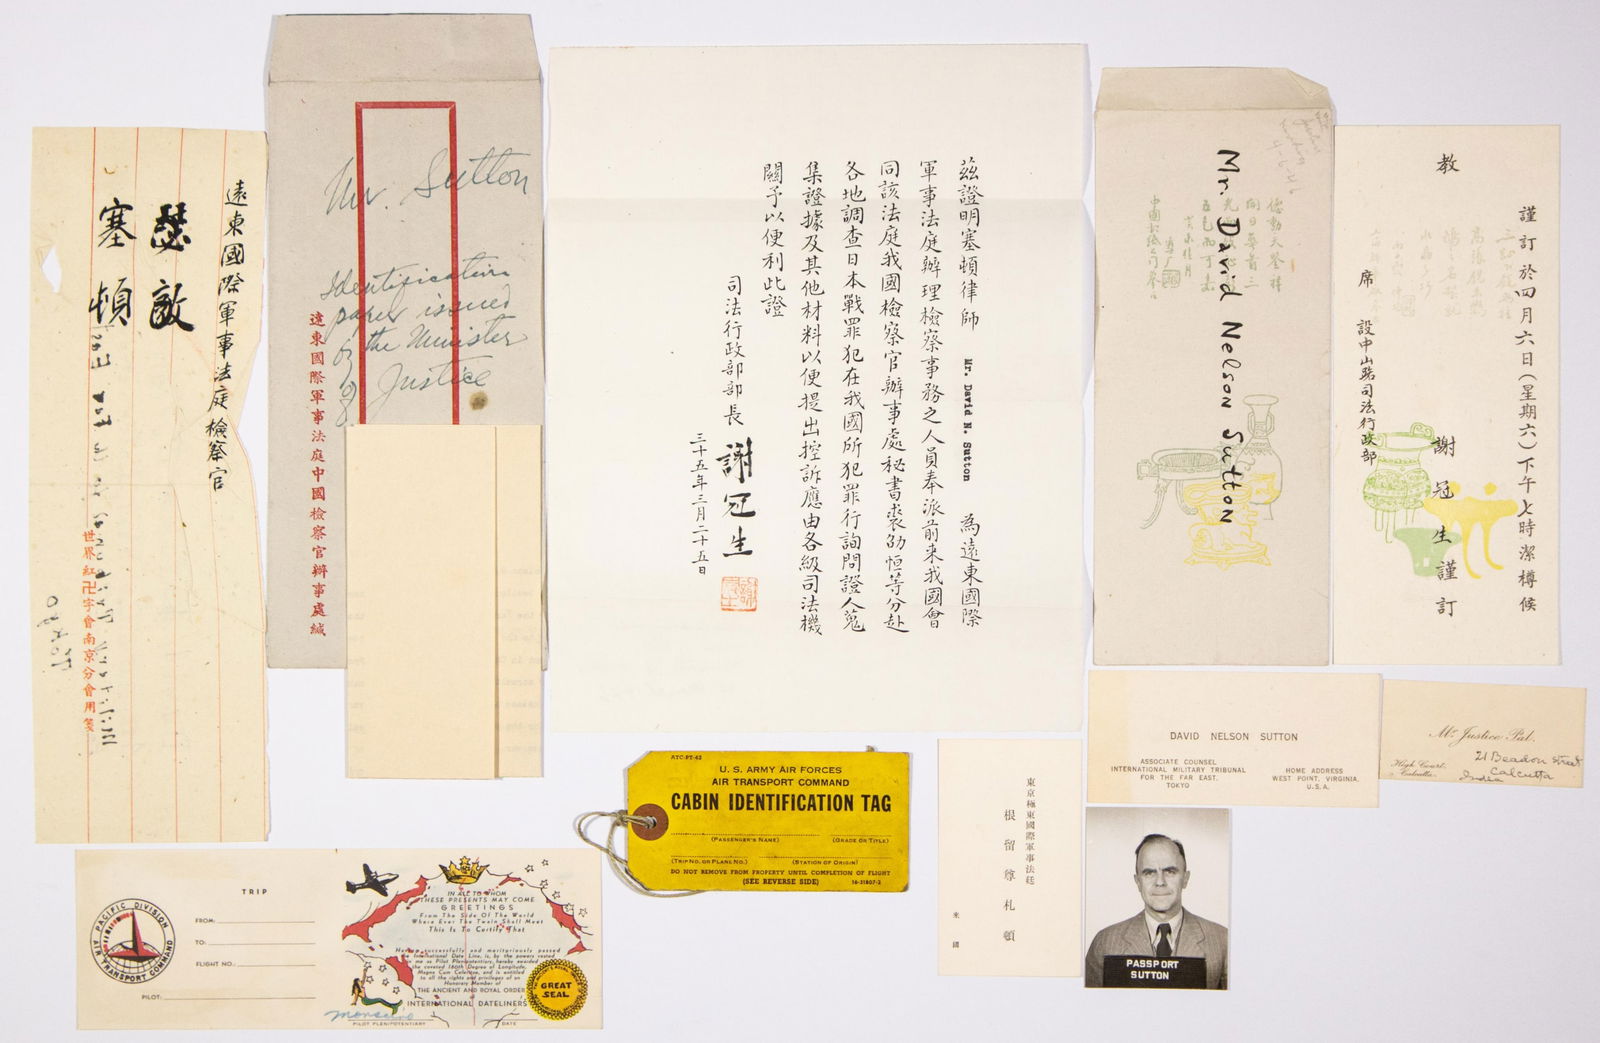 遠東國際軍事法庭檢察官
瑟敵
塞頓
世界紅卍字會南京分會用箋
Mr. Sutton
Identification
paper issued
by the Minister
of Justice
遠東國際軍事法庭中國檢察官辦事處緘
茲證明塞頓律師 Mr. David N. Sutton 為遠東國際
軍事法庭辦理檢察事務之人員奉派前來我國會
同該法庭我國檢察官辦事處秘書裘劭恒等分赴
各地調查日本戰罪犯在我國所犯罪行詢問證人蒐
集證據及其他材料以便提出控訴應由各級司法機
關予以便利此證
司法行政部部長 謝冠生
三十五年三月二十五日
Mr. David Nelson Sutton
4-6-46
謹訂於四月六日(星期六)下午七時潔樽候
教
謝冠生謹訂
席設中山路司法行政部
DAVID NELSON SUTTON
ASSOCIATE COUNSEL
INTERNATIONAL MILITARY TRIBUNAL
FOR THE FAR EAST.
TOKYO
HOME ADDRESS
WEST POINT, VIRGINIA.
U.S.A.
Mr. Justice Pal.
High Court,
Calcutta.
21 Beadon Street
Calcutta
India
ATC-PT-42
U. S. ARMY AIR FORCES
AIR TRANSPORT COMMAND
CABIN IDENTIFICATION TAG
(PASSENGER'S NAME)
(GRADE OR TITLE)
(TRIP NO. OR PLANE NO.)
(STATION OF ORIGIN)
DO NOT REMOVE FROM PROPERTY UNTIL COMPLETION OF FLIGHT
(SEE REVERSE SIDE)
16-31807-2
東京極東國際軍事法廷
根留尊札頓
米國
PASSPORT
SUTTON
PACIFIC DIVISION
AIR TRANSPORT COMMAND
TRIP
FROM:
TO:
FLIGHT NO.:
PILOT:
IN ALL TO WHOM
THESE PRESENTS MAY COME
GREETINGS
From The Side Of The World
Where Ever The Twain Shall Meet
This Is To Certify That
Having successfully and meritoriously passed
the International Date Line, is, by the powers vested
in me as Pilot Plenipotentiary, hereby awarded
the coveted 180th Degree of Longitude,
Magna Cum Celeritas, and is entitled
to all the rights and privileges of an
Honorary Member of
THE ANCIENT AND ROYAL ORDER
INTERNATIONAL DATELINERS
PILOT PLENIPOTENTIARY
DATE
GREAT
SEAL